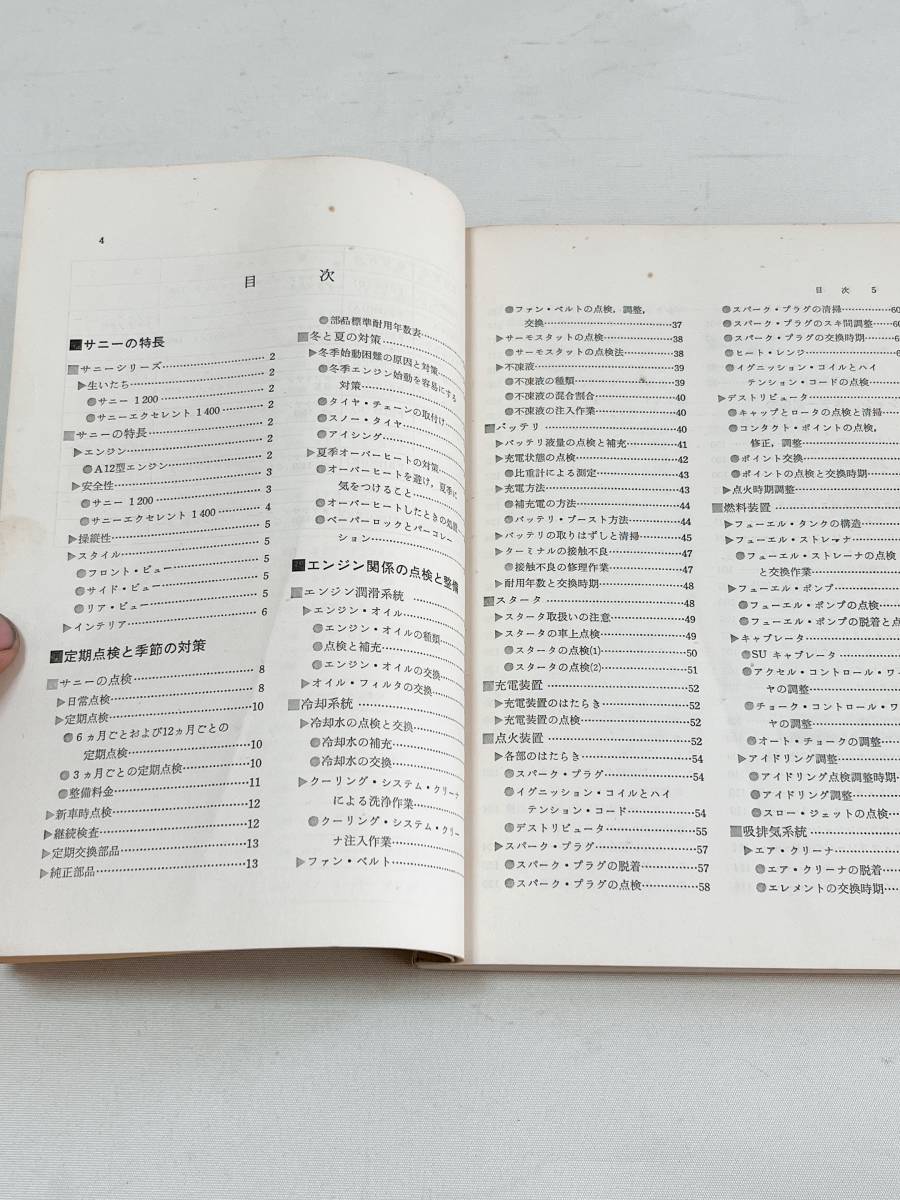 4
目 次
サニーの特長
サニーシリーズ 2
生いたち 2
サニー 1200 2
サニーエクセレント 1400 2
サニーの特長 2
エンジン 2
A12型エンジン 2
安全性 3
サニー 1200 3
サニーエクセレント 1400 4
操縦性 5
スタイル 5
フロント・ビュー 5
サイド・ビュー 5
リア・ビュー 5
インテリア 6
定期点検と季節の対策
サニーの点検 8
日常点検 8
定期点検 10
6ヵ月ごとおよび12ヵ月ごとの
定期点検 10
3ヵ月ごとの定期点検 10
整備料金 11
新車時点検 12
継続検査 12
定期交換部品 13
純正部品 13
部品標準耐用年数表
冬と夏の対策
冬季始動困難の原因と対策
冬季エンジン始動を容易にする
対策
タイヤ・チェーンの取付け
スノー・タイヤ
アイシング
夏季オーバーヒートの対策
オーバーヒートを避け,夏季に
気をつけること
オーバーヒートしたときの処置
ベーパーロックとパーコレー
ション
エンジン関係の点検と整備
エンジン潤滑系統
エンジン・オイル
エンジン・オイルの種類
点検と補充
エンジン・オイルの交換
オイル・フィルタの交換
冷却系統
冷却水の点検と交換
冷却水の補充
冷却水の交換
クーリング・システム・クリーナ
による洗浄作業
クーリング・システム・クリー
ナ注入作業
ファン・ベルト
目 次 5
ファン・ベルトの点検,調整,
交換 37
サーモスタットの点検 38
サーモスタットの点検法 38
不凍液 39
不凍液の種類 39
不凍液の混合割合 40
不凍液の注入作業 40
バッテリ 40
バッテリ液量の点検と補充 41
充電状態の点検 42
比重計による測定 43
充電方法 43
補充電の方法 44
バッテリ・ブースト方法 44
バッテリの取りはずしと清掃 45
ターミナルの接触不良 47
接触不良の修理作業 47
耐用年数と交換時期 48
スタータ 48
スタータ取扱いの注意 49
スタータの車上点検 49
スタータの点検(1) 50
スタータの点検(2) 51
充電装置 52
充電装置のはたらき 52
充電装置の点検 52
点火装置 52
各部のはたらき 54
スパーク・プラグ 54
イグニッション・コイルとハイ
テンション・コード 54
デストリビュータ 55
スパーク・プラグ 57
スパーク・プラグの脱着 57
スパーク・プラグの点検 58
スパーク・プラグの清掃 60
スパーク・プラグのスキ間調整
スパーク・プラグの交換時期
ヒート・レンジ
イグニッション・コイルとハイ
テンション・コードの点検
デストリビュータ
キャップとロータの点検と清掃
コンタクト・ポイントの点検,
修正,調整
ポイント交換
ポイントの点検と交換時期
点火時期調整
燃料装置
フューエル・タンクの構造
フューエル・ストレーナ
フューエル・ストレーナの点検
と交換作業
フューエル・ポンプ
フューエル・ポンプの点検
フューエル・ポンプの脱着と点
キャブレータ
SU キャブレータ
アクセル・コントロール・ワ
ヤの調整
チョーク・コントロール・ワ
ヤの調整
オート・チョークの調整
アイドリング調整
アイドリング点検調整時期
アイドリング調整
スロー・ジェットの点検
吸排気系統
エア・クリーナ
エア・クリーナの脱着
エレメントの交換時期